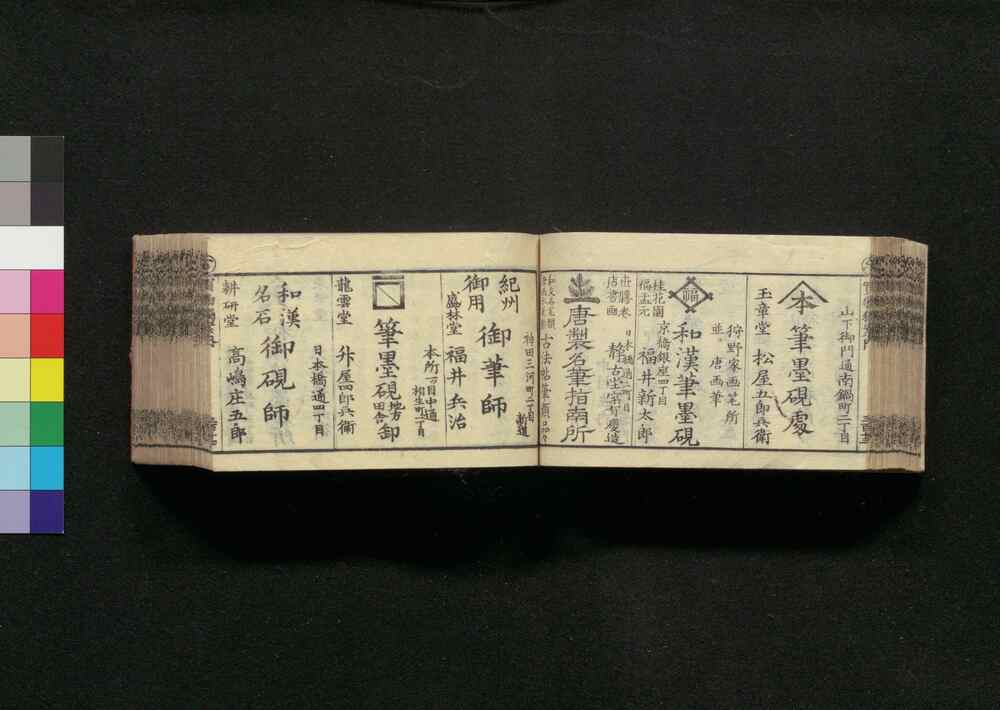 山下御門通南鍋町二丁目
本
筆墨硯處
玉章堂 松屋五郎兵衛
狩野家画筆所
並 唐画筆
福
和漢筆墨硯
京橋銀座四丁目
桂花園
福孟元
福井新太郎
日本橋通二町目
静古堂
唐製名筆指南所
古法帖筆
神田三河町二丁目
新道
紀州
御用
御筆師
盛林堂 福井兵治
本所二つ目中通
相生町二丁目
筆墨硯
地方
田舎
卸
龍雲堂 舛屋四郎兵衛
日本橋通四丁目
和漢
名石
御硯師
耕研堂 高嶋庄五郎